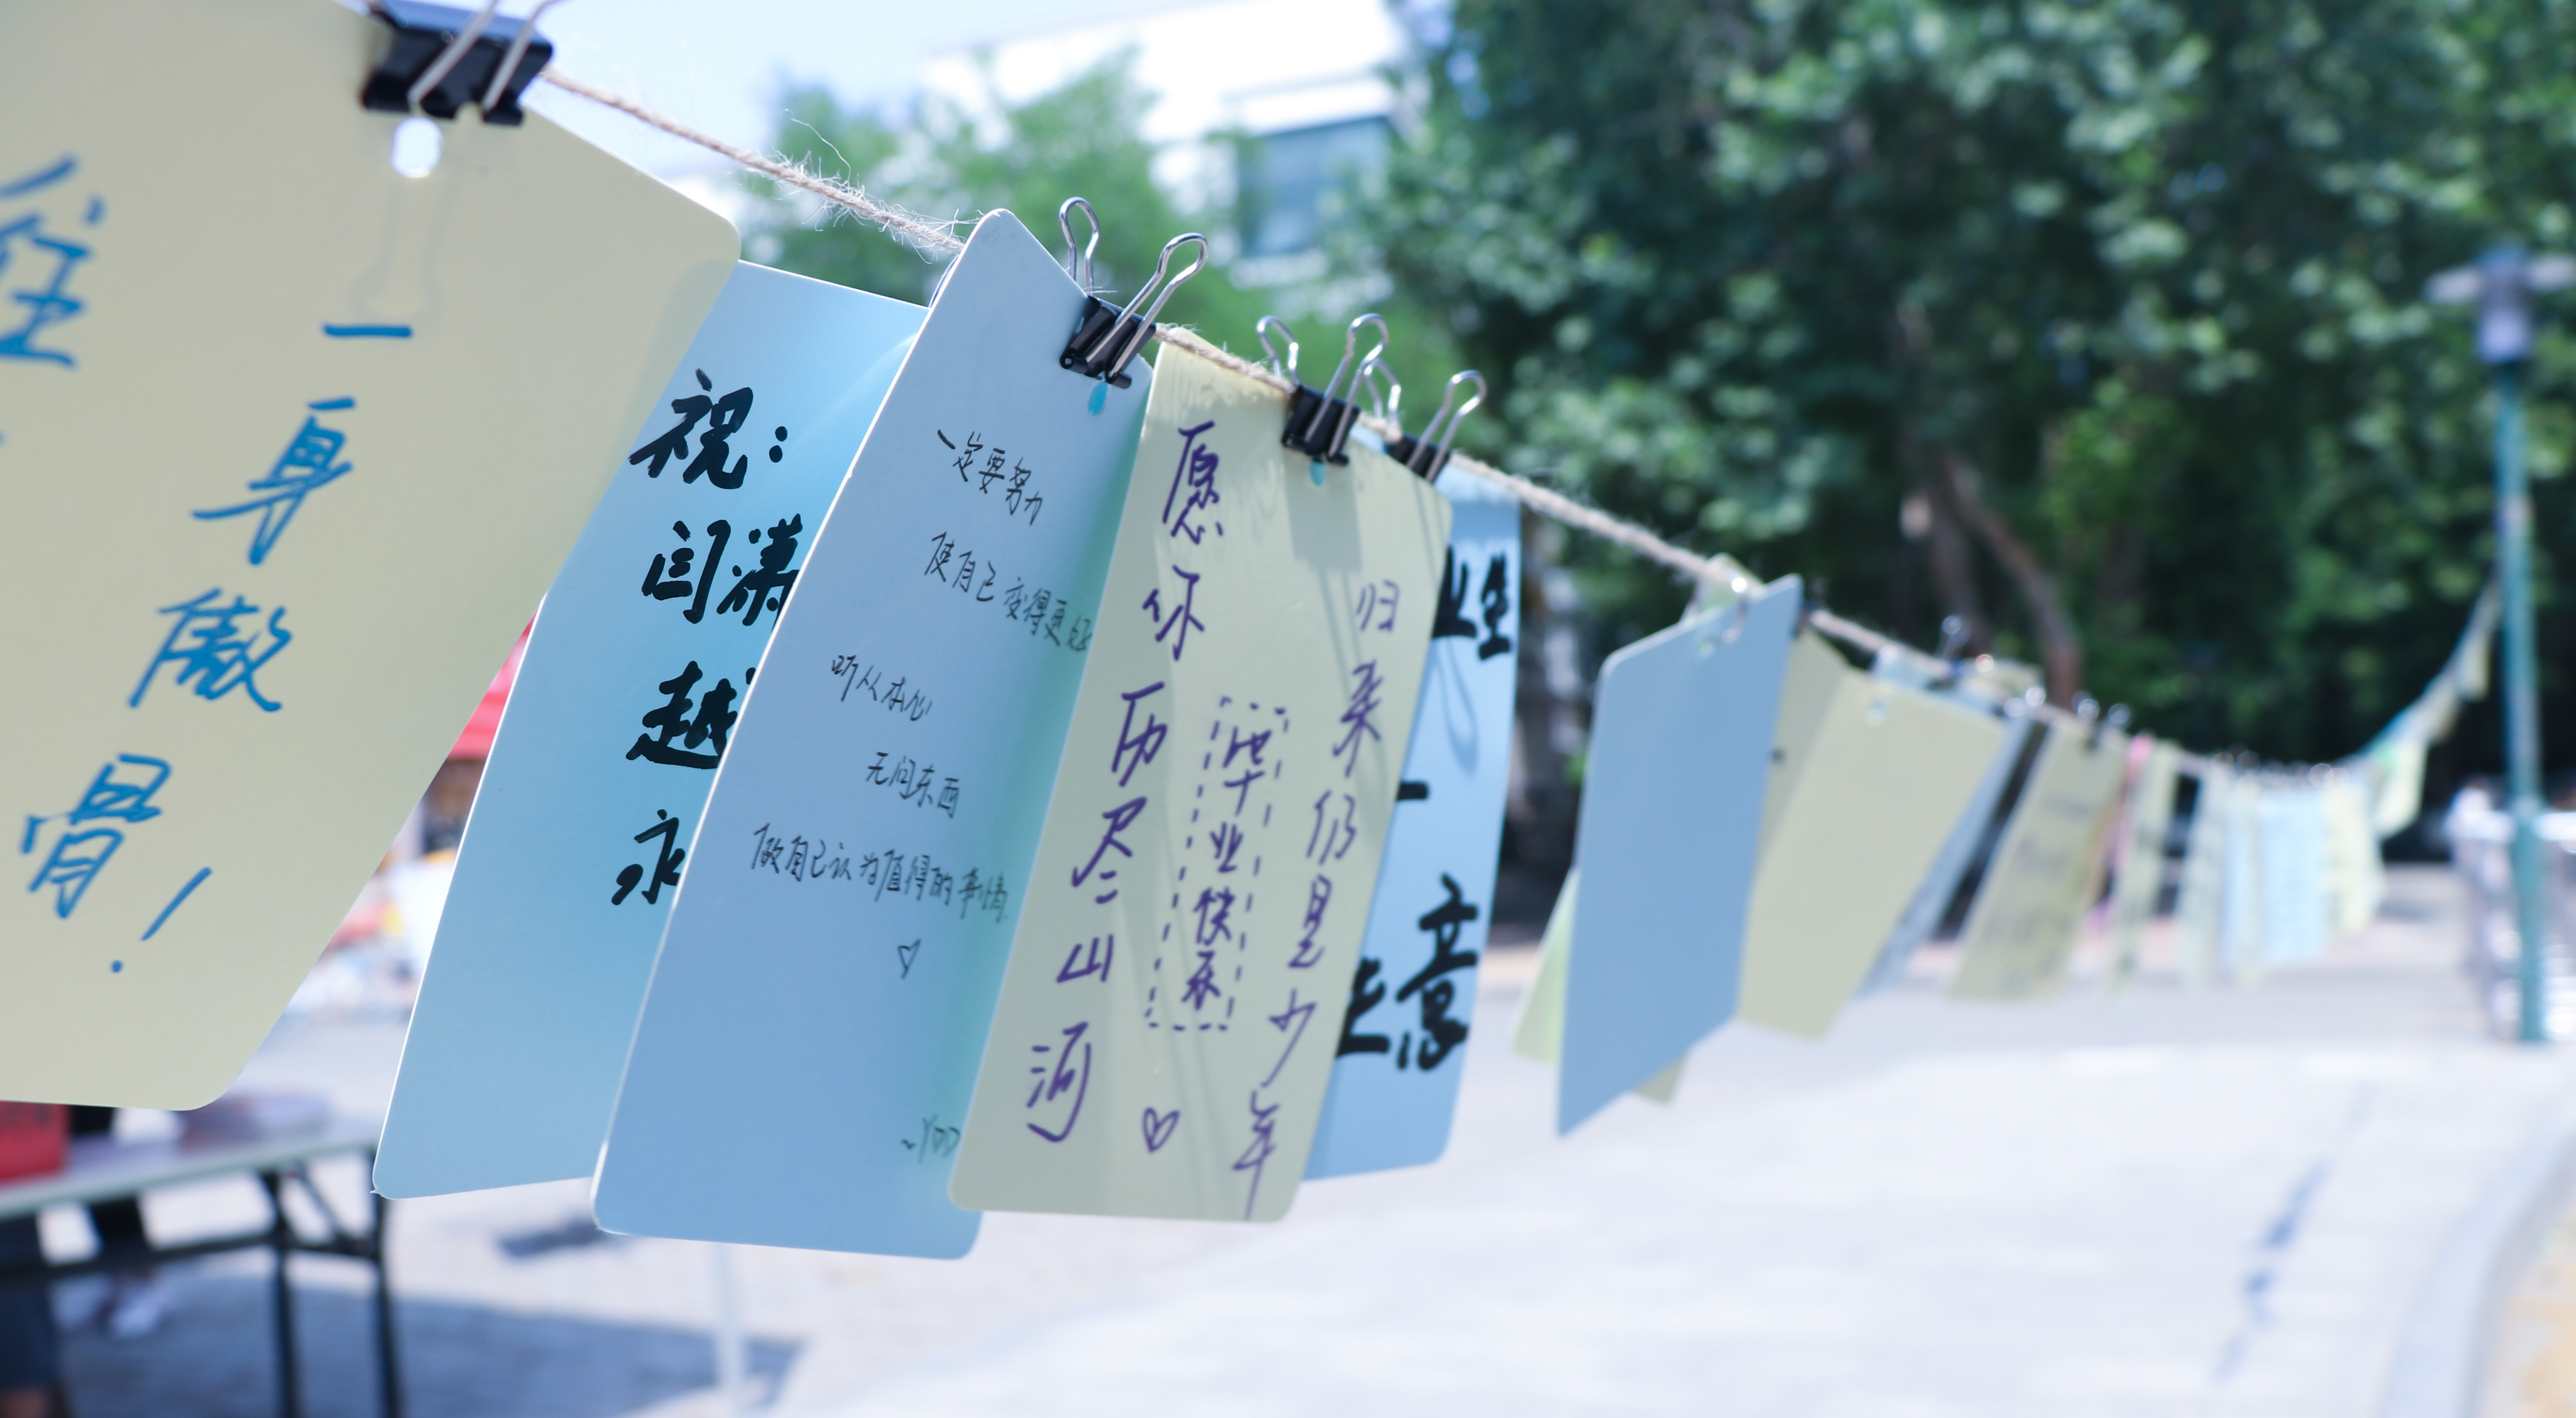 一身傲骨！
祝：
闫潇
越
永
一定要努力
使自己变得更好
听从本心
无问东西
做自己认为值得的事情
愿你历尽山河
毕业快乐
归来仍是少年
业生
一
意